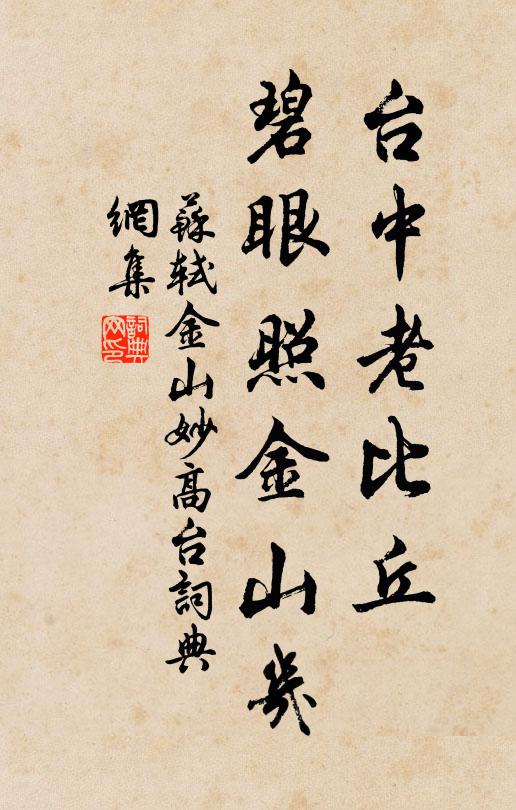 台中老比丘
碧眼照金山几
蘇軾金山妙高台詞典
網集
詞典网印